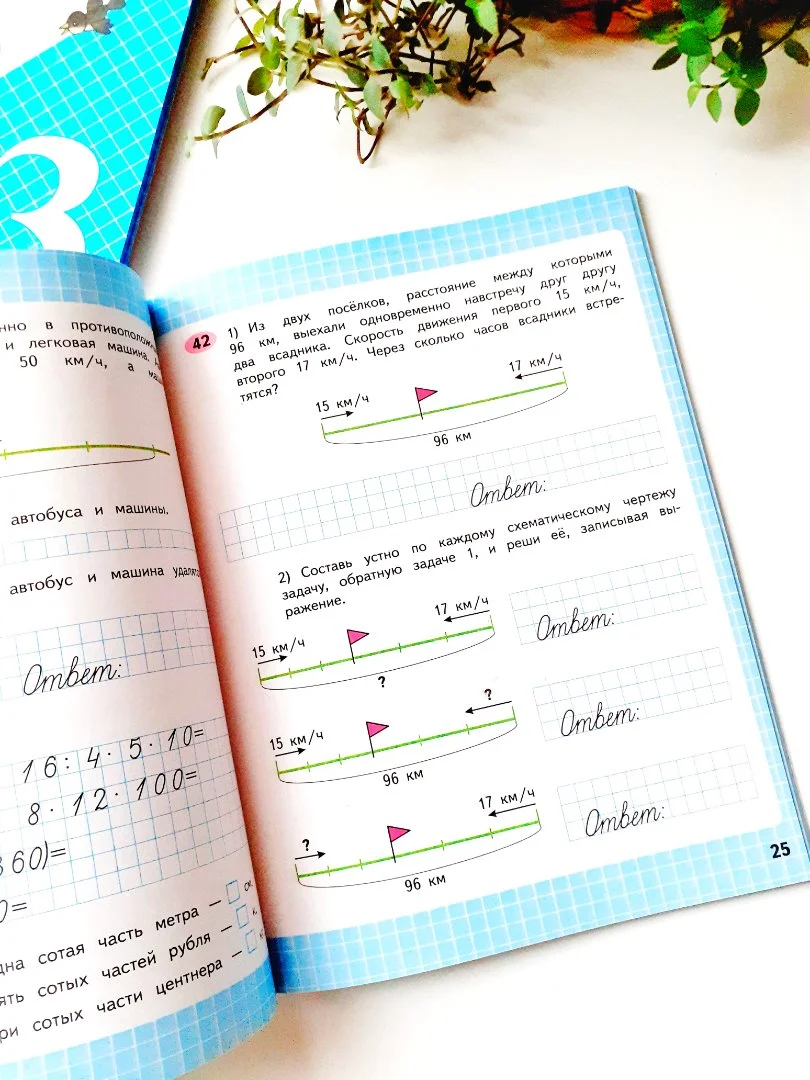 3
в противополож
и легковая машина.
50 км/ч, а
автобуса и машины.
автобус и машина
Ответ:
16 : 4 · 5 · 10=
8 · 12 · 100=
360)=
0=
сотая часть метра —
сотых частей рубля —
сотых части центнера —
42
1) Из двух посёлков, расстояние между которыми
96 км, выехали одновременно навстречу друг другу
два всадника. Скорость движения первого 15 км/ч,
второго 17 км/ч. Через сколько часов всадники встре-
тятся?
15 км/ч 17 км/ч
96 км
Ответ:
2) Составь устно по каждому схематическому чертежу
задачу, обратную задаче 1, и реши её, записывая вы-
ражение.
15 км/ч 17 км/ч
?
Ответ:
15 км/ч ?
96 км
Ответ:
? 17 км/ч
96 км
Ответ:
25